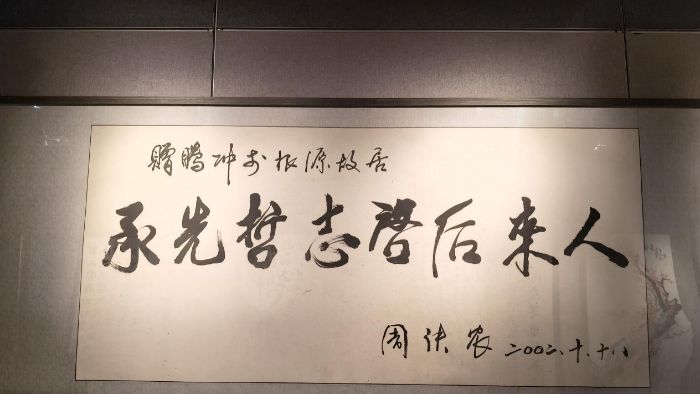 赠腾冲李根源故居
承先哲志启后来人
周铁农 二〇〇二.十.十八